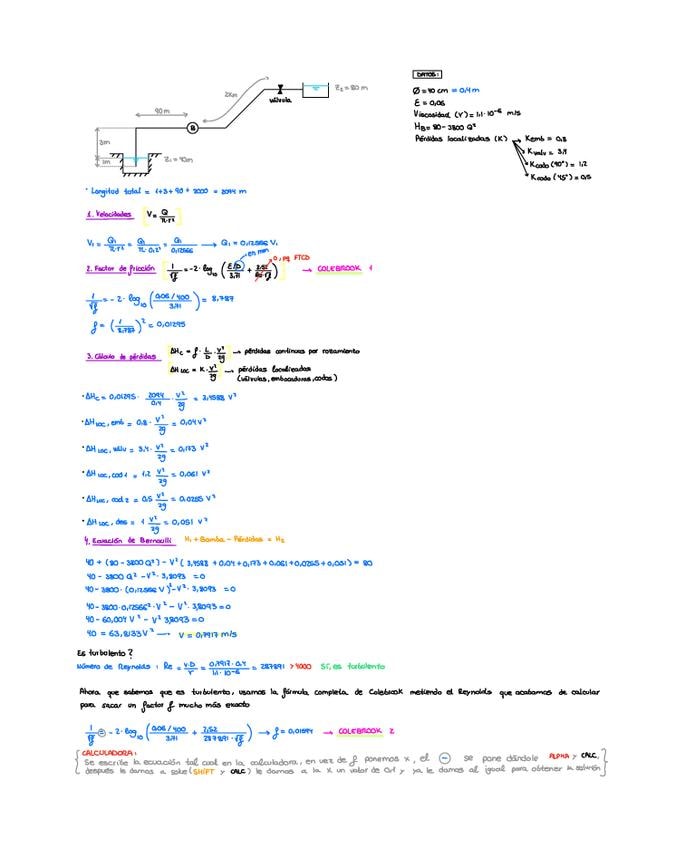 DATOS:
Ø = 40 cm = 0,4 m
ε = 0,06
Viscosidad (γ) = 1,1·10⁻⁶ m/s
H_B = 80 - 3800 Q²
Pérdidas localizadas (K) → K emb = 0,8
K valv = 3,4
K codo (90°) = 1,2
K codo (45°) = 0,5
2Km
válvula
Z₂ = 80 m
90 m
B
3m
1m
Z₁ = 40m
· Longitud total = 1+3+90+2000 = 2094 m
1. Velocidades V = Q/π·r²
V₁ = Q₁/π·r² = Q₁/π·0,2² = Q₁/0,12566 → Q₁ = 0,12566 V₁
2. Factor de fricción 1/√f = -2·log₁₀ (E/D/3,71 + 2,52/Re·√f) → COLEBROOK 1
en mm
0, pq FTCD
1/√f = -2·log₁₀ (0,06/400/3,71) = 8,787
f = (1/8,787)² = 0,01295
3. Cálculo de pérdidas ΔHc = f·L/D·V²/2g → pérdidas continuas por rozamiento
ΔH LOC = K·V²/2g → pérdidas localizadas
(válvulas, embocaduras, codos)
· ΔHc = 0,01295· 2094/0,4 · V²/2g = 3,4588 V²
· ΔH LOC, emb = 0,8· V²/2g = 0,04 V²
· ΔH LOC, valv = 3,4· V²/2g = 0,173 V²
· ΔH LOC, cod 1 = 1,2 V²/2g = 0,061 V²
· ΔH LOC, cod 2 = 0,5 V²/2g = 0,0255 V²
· ΔH LOC, des = 1 V²/2g = 0,051 V²
4. Ecuación de Bernoulli H₁ + Bomba - Pérdidas = H₂
40 + (80 - 3800 Q²) - V² (3,4588 + 0,04 + 0,173 + 0,061 + 0,0255 + 0,051) = 80
40 - 3800 Q² - V²· 3,8093 = 0
40 - 3800· (0,12566 V)² - V²· 3,8093 = 0
40 - 3800·0,12566²·V² - V²·3,8093 = 0
40 - 60,004 V² - V² 3,8093 = 0
40 = 63,8133 V² → V = 0,7917 m/s
Es turbulento?
Número de Reynolds : Re = V·D/γ = 0,7917·0,4/1,1·10⁻⁶ = 287891 > 4000 Sí, es turbulento
Ahora que sabemos que es turbulento, usamos la fórmula completa de Colebook metiendo el Reynolds que acabamos de calcular
para sacar un factor f mucho más exacto
1/√f = -2·log₁₀ (0,06/400/3,71 + 2,52/287891·√f) → f = 0,01594 → COLEBROOK 2
CALCULADORA:
Se escribe la ecuación tal cual en la calculadora, en vez de f ponemos x, el = se pone dándole ALPHA y CALC,
después le damos a solve (SHIFT y CALC) le damos a la X un valor de 0,1 y ya le damos al igual para obtener la solución